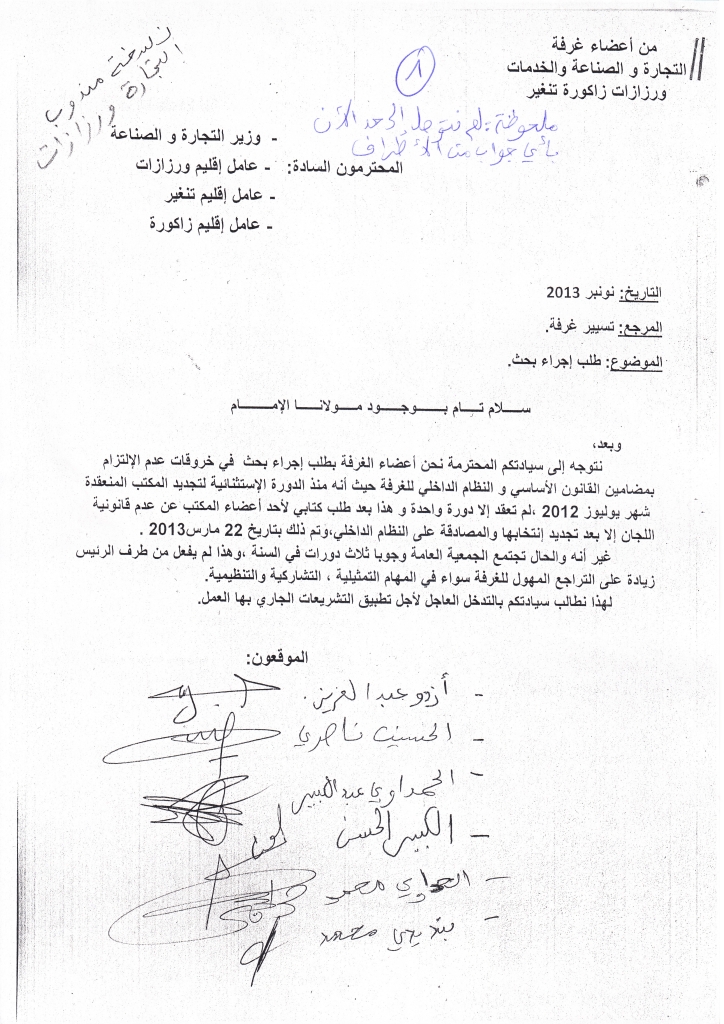 من أعضاء غرفة
التجارة و الصناعة والخدمات
ورزازات زاكورة تنغير
1
ملحوظة: لم نتوصل إلى حد الآن
بأي جواب من الأطراف
نسخة مندوب
التجارة ورزازات
- وزير التجارة و الصناعة
المحترمون السادة: - عامل إقليم ورزازات
- عامل إقليم تنغير
- عامل إقليم زاكورة
التاريخ: نونبر 2013
المرجع: تسيير غرفة.
الموضوع: طلب إجراء بحث.
ســـلام تـــام بـــوجـــود مـــولانـــا الإمـــام
وبعد،
نتوجه إلى سيادتكم المحترمة نحن أعضاء الغرفة بطلب إجراء بحث في خروقات عدم الإلتزام
بمضامين القانون الأساسي و النظام الداخلي للغرفة حيث أنه منذ الدورة الإستثنائية لتجديد المكتب المنعقدة
شهر يوليوز 2012 ،لم تعقد إلا دورة واحدة و هذا بعد طلب كتابي لأحد أعضاء المكتب عن عدم قانونية
اللجان إلا بعد تجديد إنتخابها والمصادقة على النظام الداخلي،وتم ذلك بتاريخ 22 مارس2013 .
غير أنه والحال تجتمع الجمعية العامة وجوبا ثلاث دورات في السنة ،وهذا لم يفعل من طرف الرئيس
زيادة على التراجع المهول للغرفة سواء في المهام التمثيلية ، التشاركية والتنظيمية.
لهذا نطالب سيادتكم بالتدخل العاجل لأجل تطبيق التشريعات الجاري بها العمل.
الموقعون:
- أزدو عبد العزيز.
- الحسين ناصري
- الحمداوي عبد الكبير
- الكبير الحسن
- محمد
- محمد